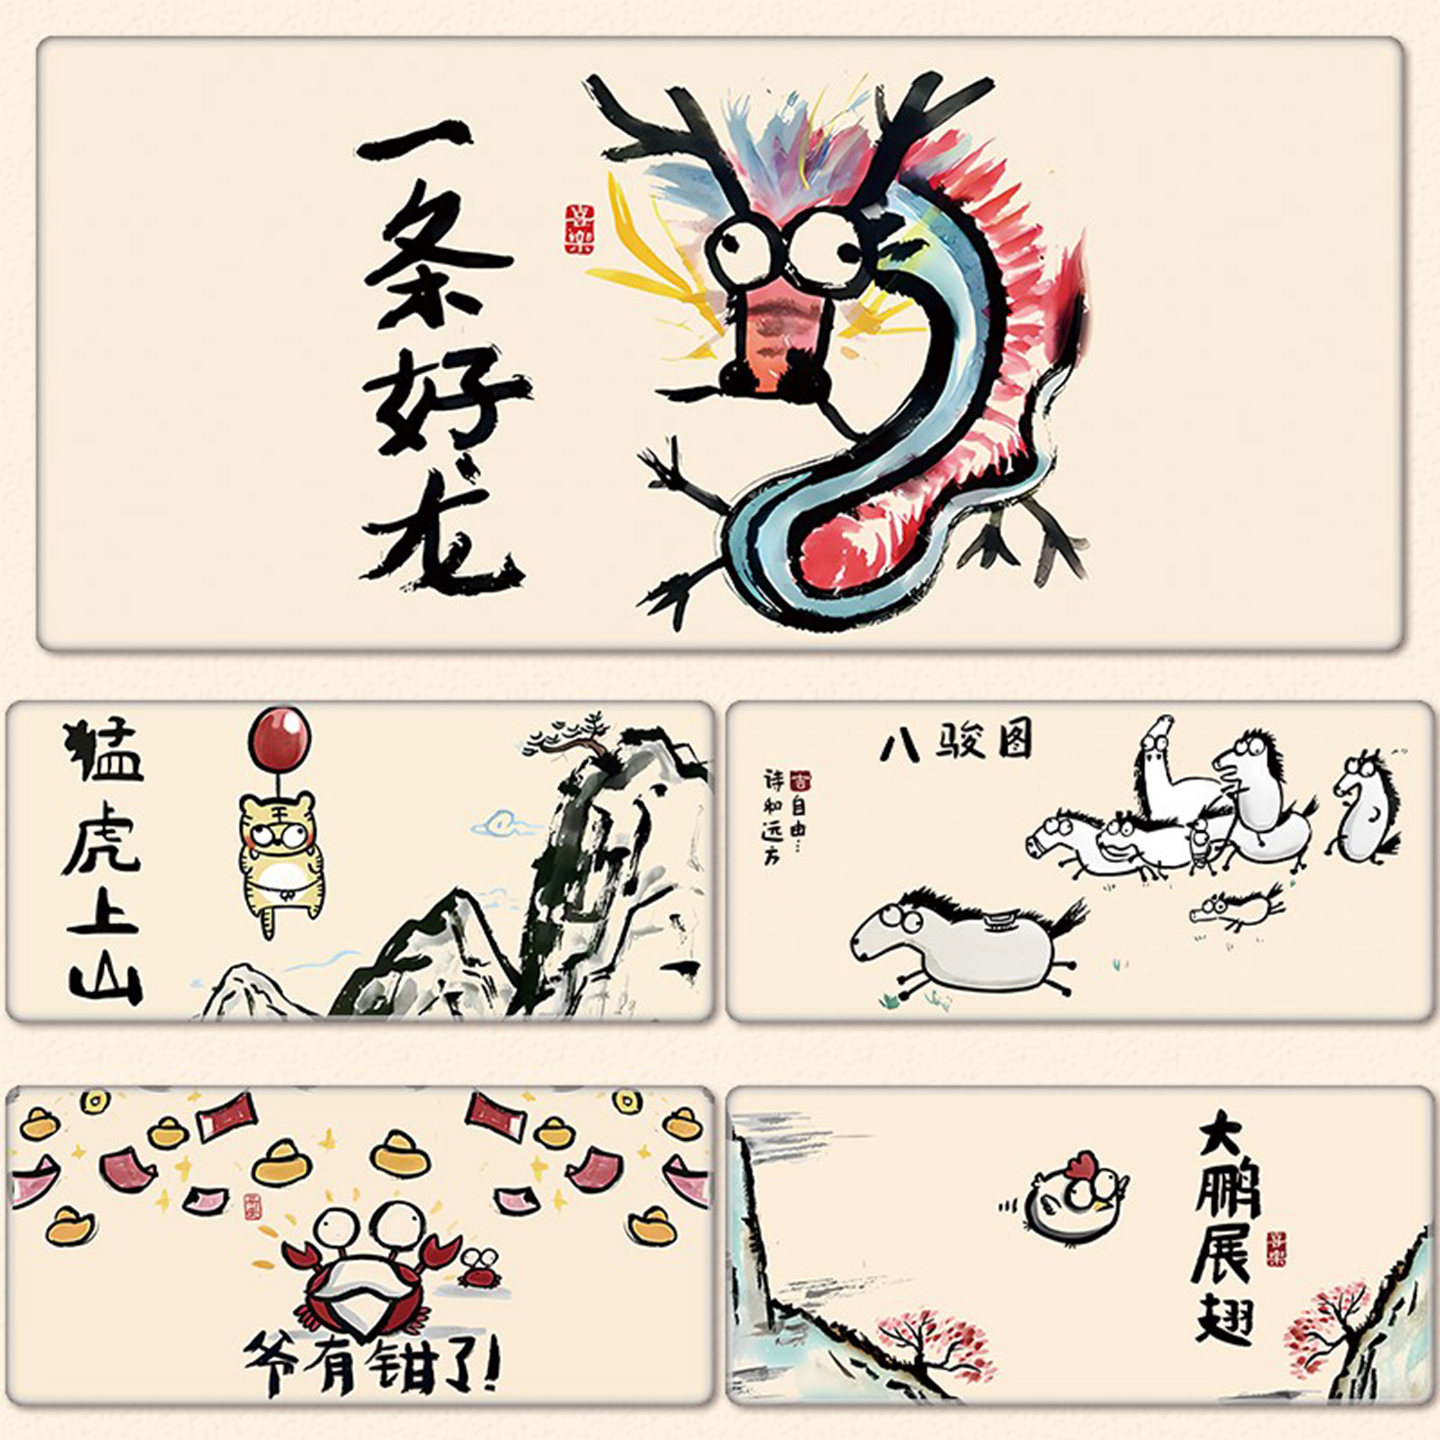 一条好龙
喜樂
猛虎上山
八骏图
吉
自由...
诗和远方
爷有钳了!
大鹏展翅
喜樂